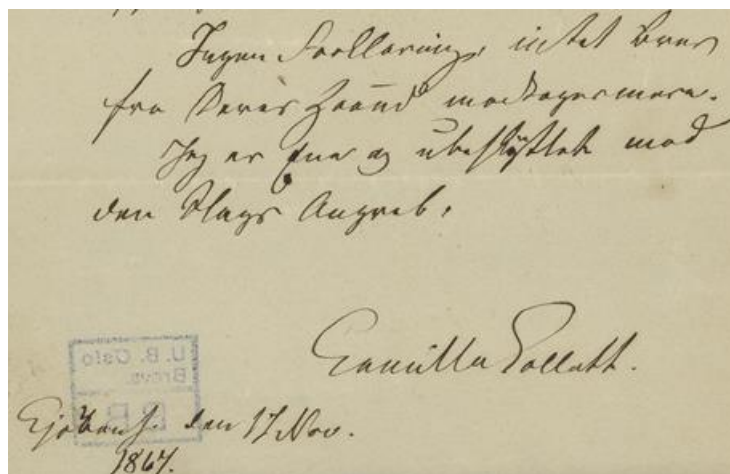 Ingen Forklaring, intet Brev
fra Deres Haand modtages mere.
Jeg er Ene og ubeskyttet mod
den Slags Angreb.
Camilla Collett.
U. B. Oslo
Brevs.
Kjøbenh. den 17 Nov.
1867.